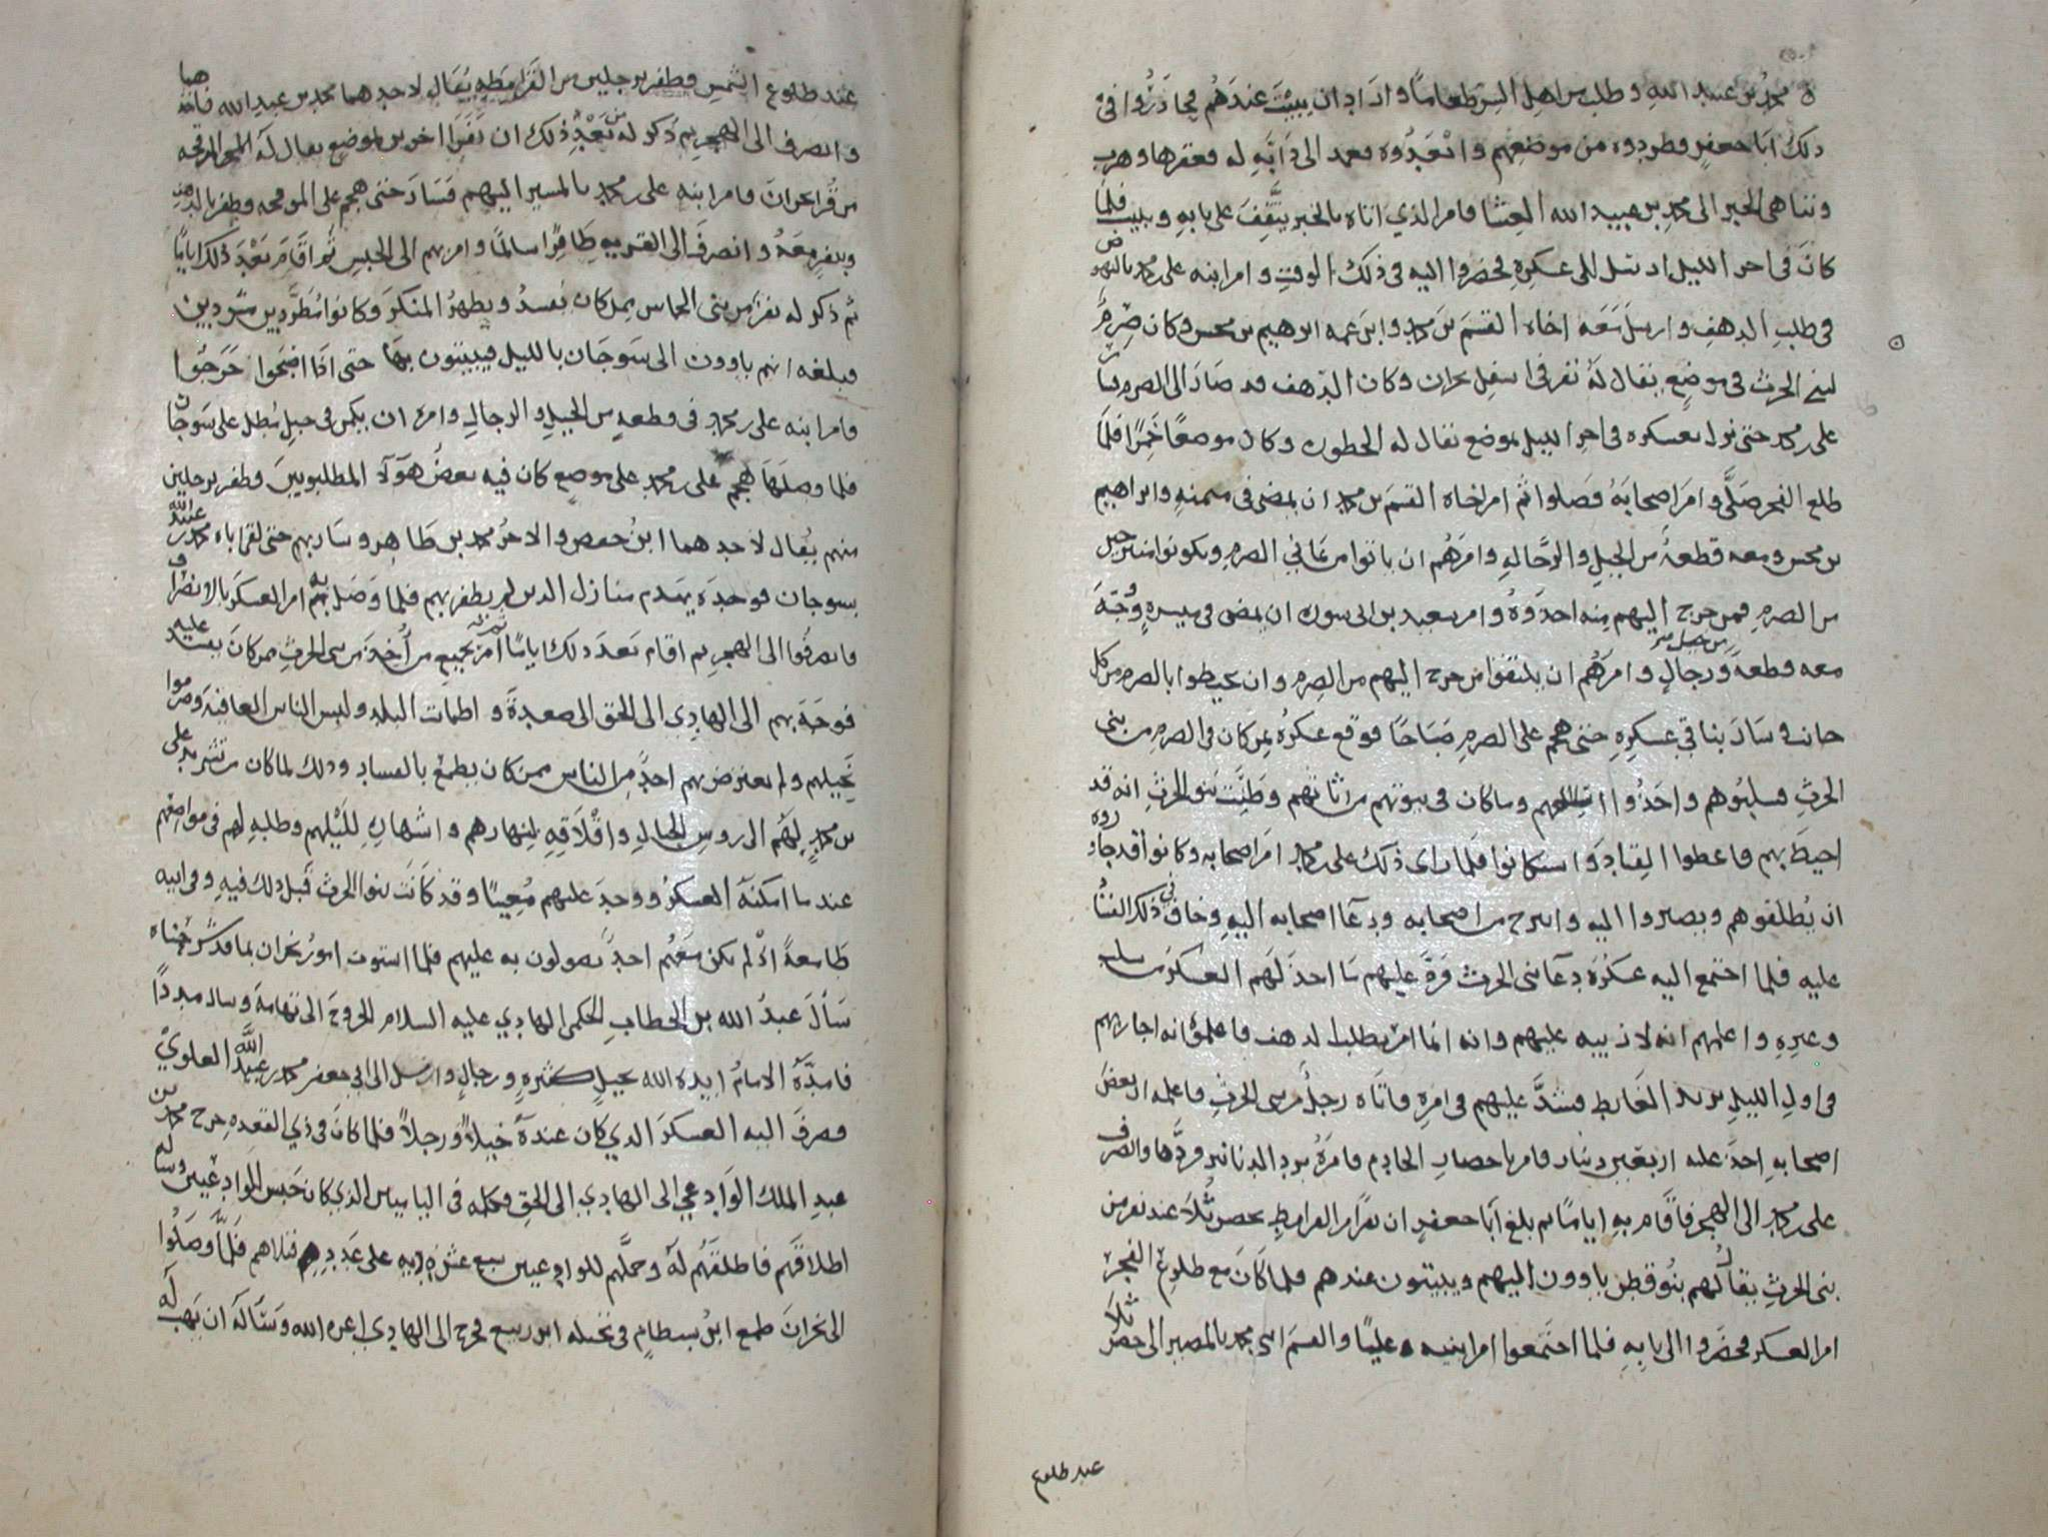 محمد بن عبيد الله وطلب من اهل البير طعاما واراد ان يبيت عندهم فحاذروا في
ذلك ابا جعفر فطردوه من موضعهم وابعدوه فعمد الى دابه له فعقرها وهرب
وتناهى الخبر الى محمد بن عبيد الله العشا فامر الذي اتاه بالخبر يتقف على بابه ويبيت فلما
كان في اخر الليل ارسل الى عسكره فحضروا اليه في ذلك الوقت وامر ابنه على بن محمد بالنهوض
في طلب الدهف وارسل معه اخاه القسم بن محمد وابن عمه ابرهيم بن محسن وكان صرم
لبني الحرث في موضع يقال له نفر في اسفل نجران وكان الدهف قد صار الى الصرم فسار
على بن محمد حتى نزل بعسكره في اخر الليل بموضع يقال له الحطوره وكان موضعا خمرا فلما
طلع الفجر صلى وامر اصحابه فصلوا ثم امر اخاه القسم بن محمد ان يمضى في ميمنه وابراهيم
بن محسن ومعه قطعة من الخيل والرجاله وامرهم ان ياتوا من يماني الصرم ويكونوا من
من الصرم فمن خرج اليهم منه اخذوه وامر سعيد بن ابي سوره ان يمضى في ميسره ووجه
معه قطعة من خيل ورجال وامرهم ان يلتقفوا من خرج اليهم من الصرم وان يحيطوا بالصرم من كل
جانب وسار بباقي عسكره حتى هجم على الصرم صباحا فوقع عسكره بمن كان في الصرم من بني
الحرث فسلبوهم واخذوا وما كان في بيوتهم من اثاثهم وظنت بنو الحرث انه قد
احيط بهم فاعطوا القياد واستكانوا فلما راى ذلك على بن محمد امر اصحابه وكانوا قد جاوروه
ان يطلقوهم ويصيروا اليه وانبرح من اصحابه ودعا اصحابه اليه وخاف في ذلك
عليه فلما اجتمع اليه عسكره دعا بني الحرث فرد عليهم ما اخذ لهم العسكر من سلب
وغيره واعلمهم انه لا ذنب عليهم وانه انما امر بطلب الدهف فاعلموه انه اجاز بهم
في اول الليل يريد الغايط فشد عليهم في امره فاتاه رجل من بني الحرث فاعلمه ان بعض
اصحابه اخذ عليه اربعين دينار فامر باحضار الخادم فامره برد الدنانير فردها وانصرف
على بن محمد الى الهجر فاقام به اياما ثم بلغ ابا جعفر ان نفرا من القرامطه بحصن ثلا عند نفر من
بني الحرث يقال لهم بنو قطن ياوون اليهم ويبيتون عندهم فلما كان مع طلوع الفجر
امر العسكر فحضروا الى بابه فلما اجتمعوا امر ابنيه عليا والقسم ابني محمد بالمصير الى حصن ثلا
عند طلوع
عند طلوع الشمس فظفر برجلين من القرامطه يقال لاحدهما محمد بن عبد الله فاخذهما
وانصرف الى الهجر ثم ذكر له من بعد ذلك ان نفرا اخرين بموضع يقال له الموفجه
من قرا نجران فامر ابنه على بن محمد بالمسير اليهم فسار حتى هجم على الموفجه وظفر بالدهف
وبنفر معه وانصرف الى القريه ظافرا سالما وامر بهم الى الحبس ثم اقام بعد ذلك اياما
ثم ذكر له نفر من بني الحماس ممن كان يفسد ويظهر المنكر وكانوا مطردين مشردين
فبلغه انهم ياوون الى سوحان بالليل فيبيتون بها حتى اذا اضحوا خرجوا
فامر ابنه على بن محمد في قطعه من الخيل والرجال وامره ان يكمن في جبل يطل على سوحان
فلما وصلها هجم على بن محمد على موضع كان فيه بعض هولا المطلوبين وظفر برجلين
منهم يقال لاحدهما ابن حفص والاخر محمد بن طاهر وسار بهم حتى لقى اباه محمد بن عبيد الله
بسوحان فوجده يهدم منازل الذين لم يظفر بهم فلما وصل به بهم امر العسكر بالانصراف
فانصرفوا الى الهجر ثم اقام بعد ذلك اياما امر بجميع من اخذ من بني الحرث ممن كان يفسد عليه
فوجه بهم الى الهادي الى الحق الى صعدة واطمات البلد ولبس الناس العافية وصرموا
نخيلهم ولم يعترض بهم احد من الناس ممن كان يطمع بالفساد وذلك لما كان من تشريد على
بن محمد لهم الى روس الجبال واقلاقه لنهارهم واشهاره لليلهم وطلبه لهم في مواضعهم
عند ما امكنه العسكر ووجد عليهم معينا وقد كانت بنو الحرث قبل ذلك فيه وفي ابيه
طامعة اذ لم يكن معهم احد يصولون به عليهم فلما استوت امور نجران بما قد شرحناه
سال عبد الله بن الخطاب الحكمي الهادي عليه السلام الخروج الى تهامة وساله مددا
فامده الامام ايده الله بخيل كثيره ورجال وارسل الى ابي جعفر محمد بن عبيد الله العلوي
فصرف اليه العسكر الذي كان عنده خيلا ورجلا فلما كان في ذي القعده خرج محمد بن
عبد الملك الوادعي الى الهادي الى الحق فكلمه في الياميين الذي كان حبس الوادعيين وساله
اطلاقهم فاطلقهم له وحملهم للوادعيين سبع عشره ديه على عدد قتلاهم فلما وصلوا
الى نجران طمع ابن بسطام في نحله ابن ربيع فخرج الى الهادي اعزه الله وساله ان يهب له